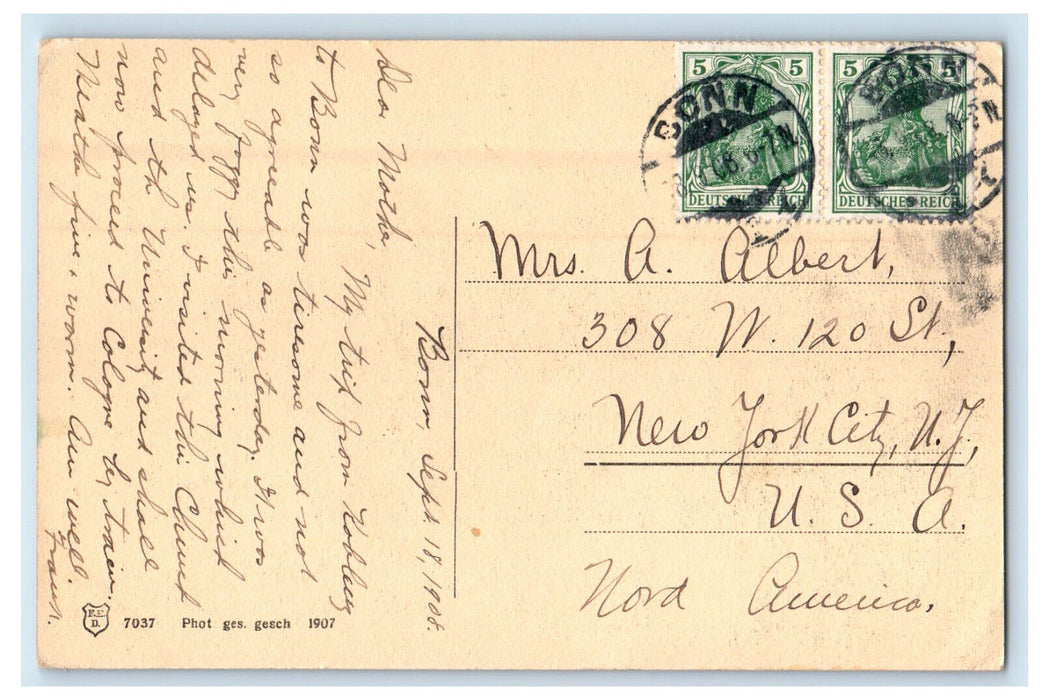 Bonn, Sept. 18, 1908.
Dear Mother,
My trip from Koblenz
to Bonn was tiresome and not
so agreeable as yesterday. It was
very foggy this morning which
delayed us. I visited this Church
and the University and shall
now proceed to Cologne by train.
Weather fine & warm. Am well.
Frank.
5 5
DEUTSCHES REICH
5 5
DEUTSCHES REICH
BONN
BONN
Mrs. A. Albert,
308 W. 120 St,
New York City, N.Y.
U. S. A.
Nord America.
F.E.
D.
7037 Phot ges. gesch 1907